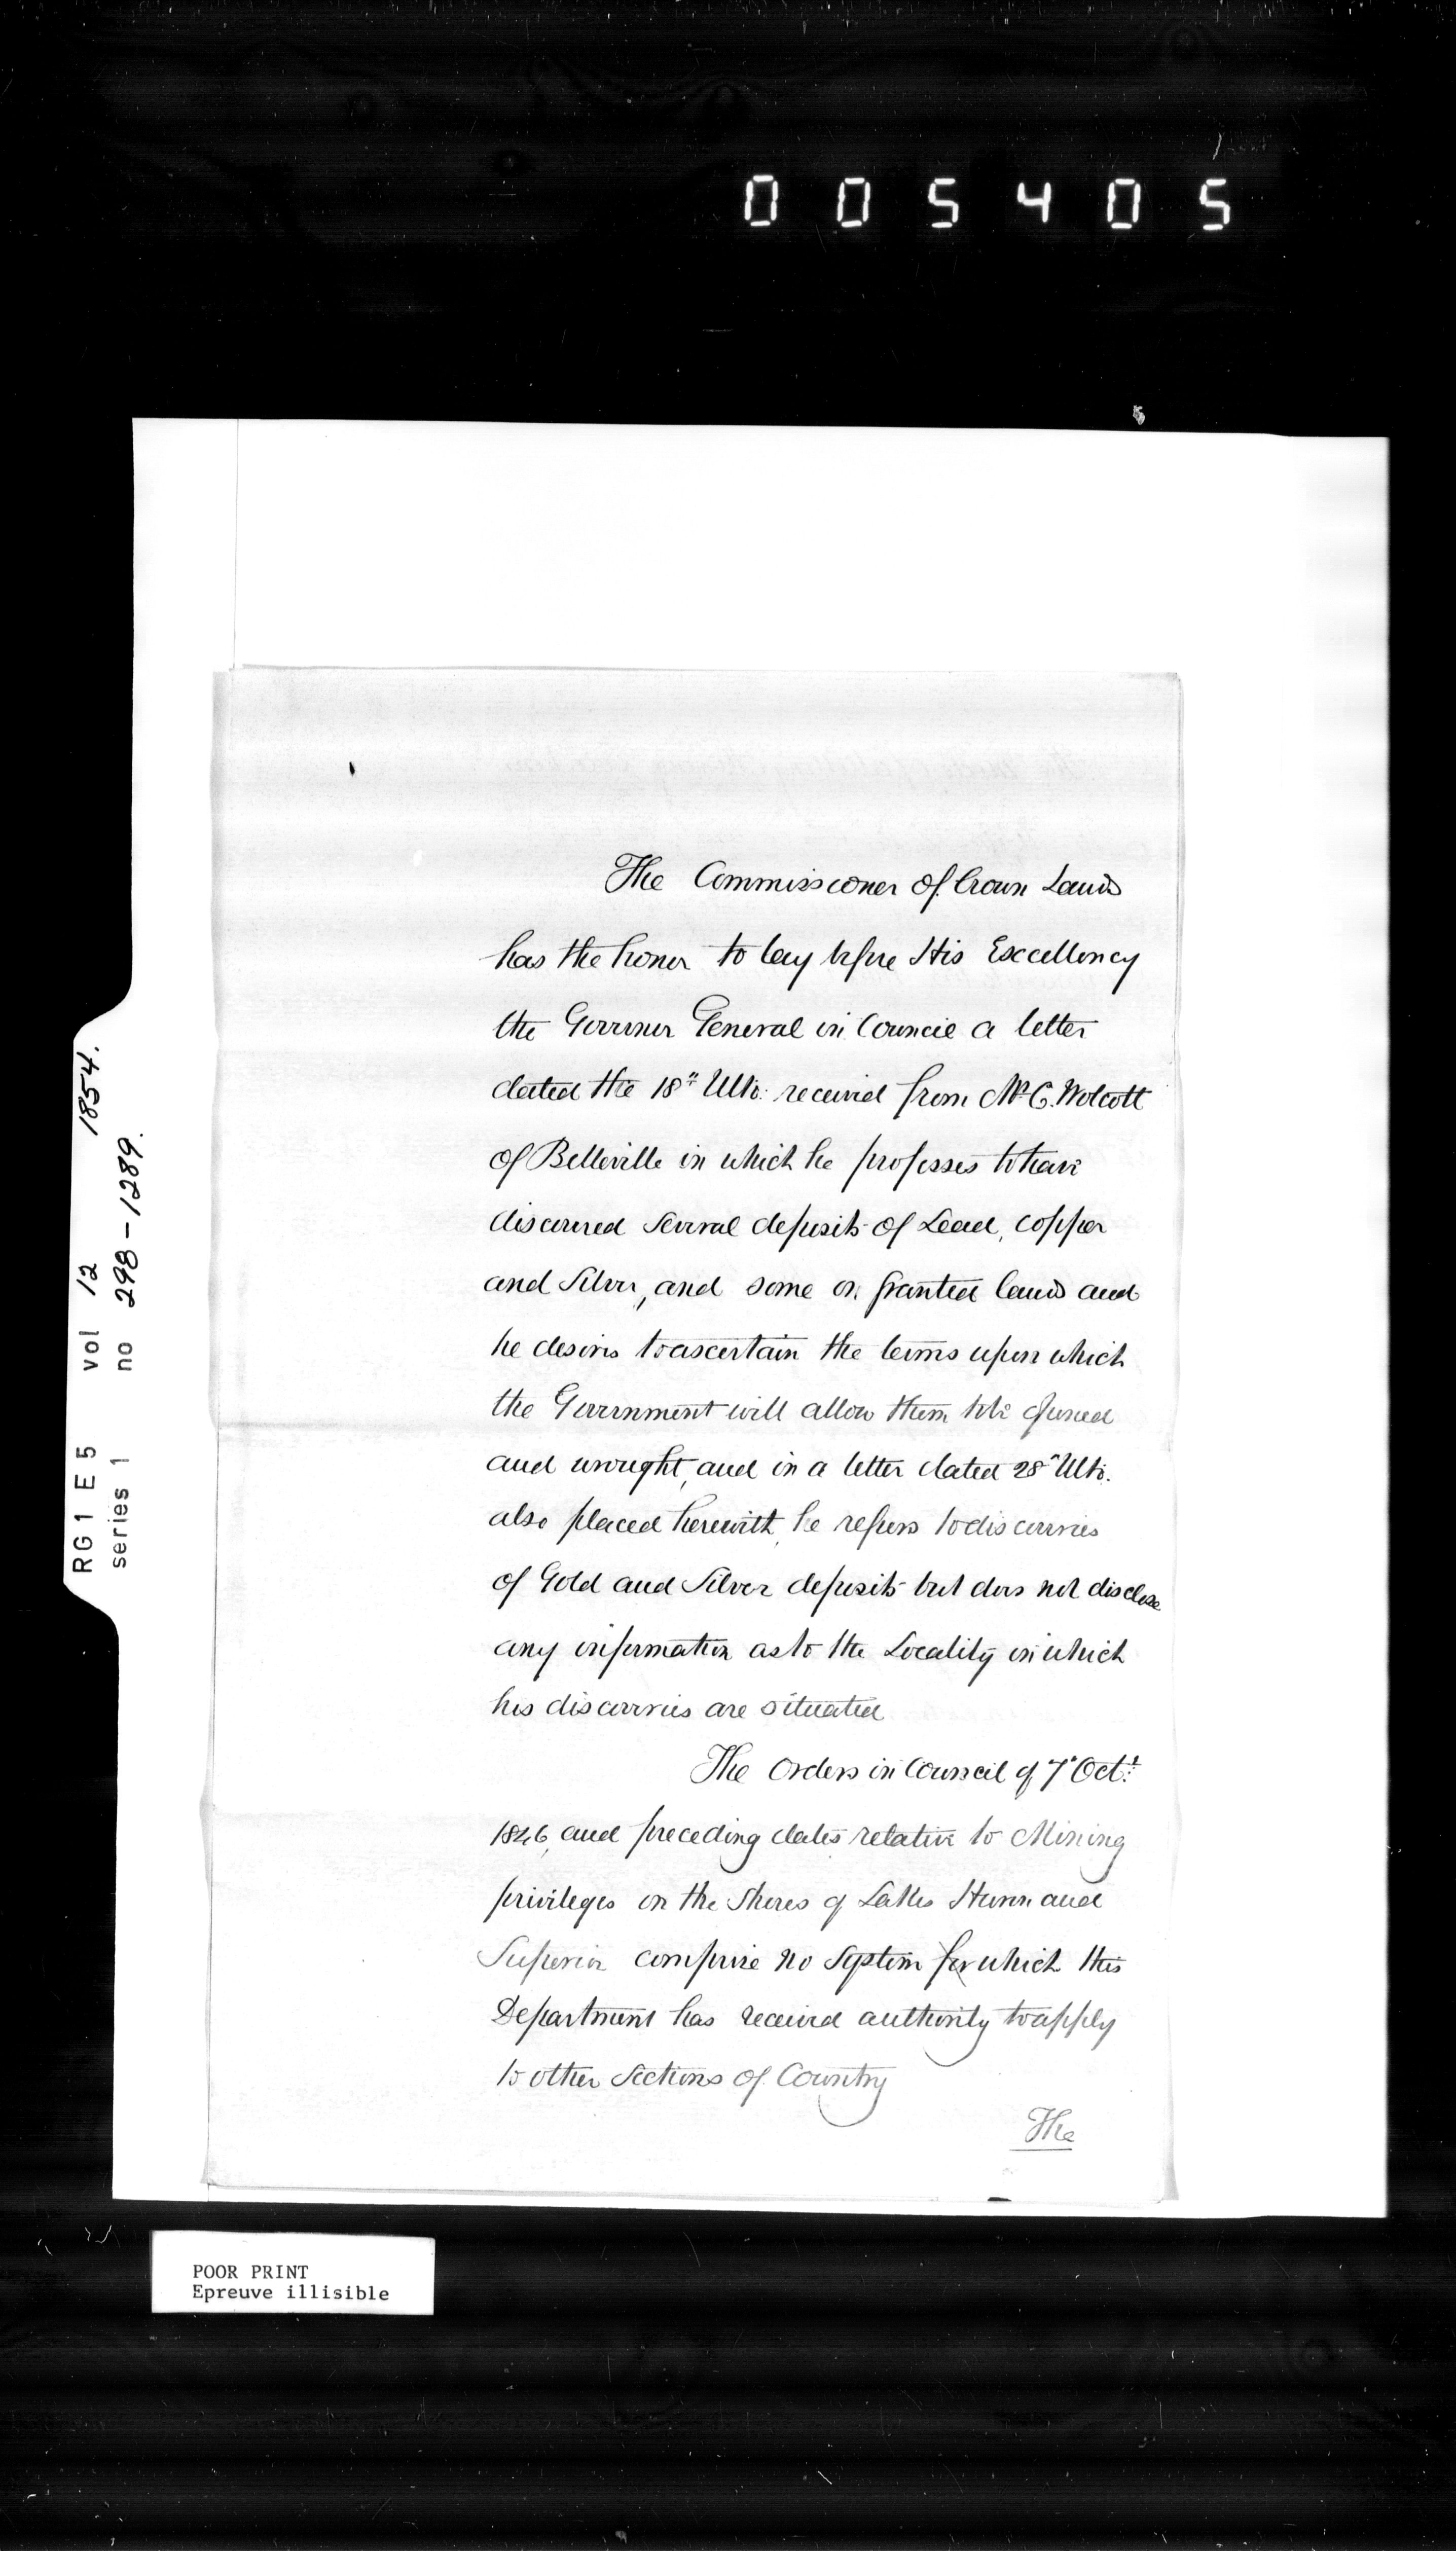 005405
RG1 E5 vol 12 1854.
series 1 no 298-1289.
The Commissioner of Crown Lands
has the honor to lay before His Excellency
the Governor General in Council a letter
dated the 18th Ulto: received from Mr C. Wolcott
of Belleville in which he professes to have
discovered several deposits of Lead, copper
and Silver, and some on granted lands and
he desires to ascertain the terms upon which
the Government will allow them to be opened
and wrought, and in a letter dated 28" Ulto.
also placed herewith, he refers to discoveries
of Gold and Silver deposits but does not disclose
any information as to the Locality in which
his discoveries are situated
The Orders in Council of 7" Oct:
1846, and preceding dates relative to Mining
privileges on the Shores of Lakes Huron and
Superior comprise no System for which this
Department has received authority to apply
to other Sections of Country
The
POOR PRINT
Epreuve illisible